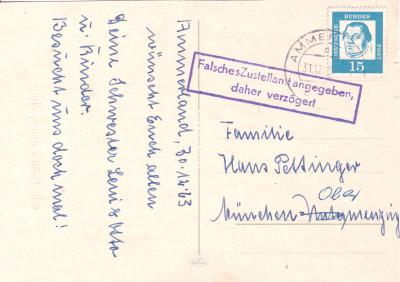 Ammerland, 30.12.63
wünscht Euch allen
Deine Schwester Leni & Otto
u. Kinder.
Besucht uns doch mal!
AMMER
31.12.
DEUTSCHE
BUNDES
POST
15
Falsches Zustellamt angegeben,
daher verzögert
Familie
Hans Pettinger
Ober
München-Untermenzing